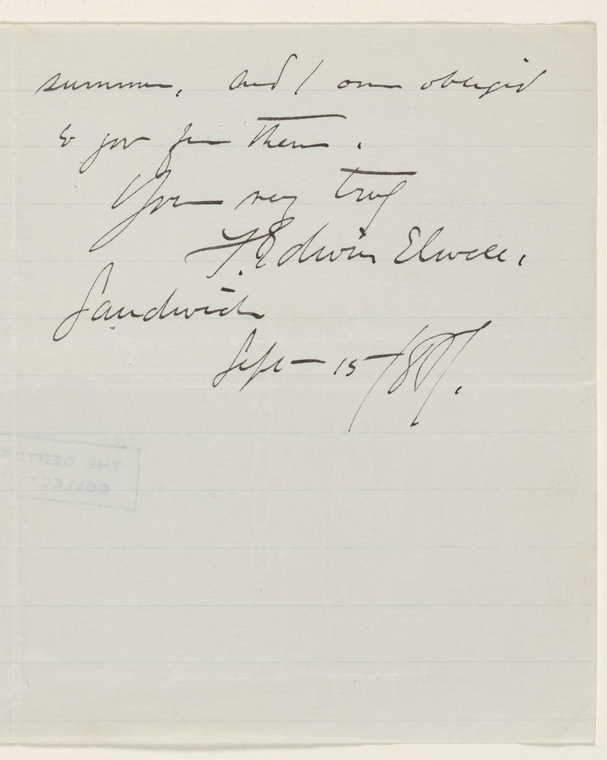 summer, and I am obliged
to you for them.
Yours very truly
F. Edwin Elwell.
Sandwich
Sept – 15 /87.
THE CENTUR
COLLECT